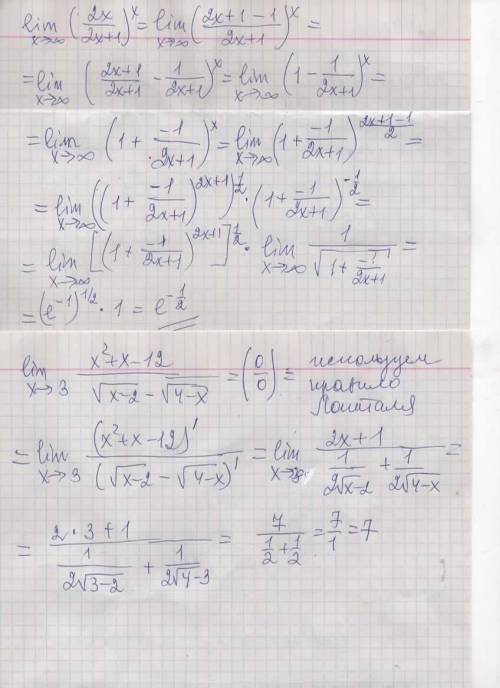 lim x→∞ (2x/(2x+1))^x = lim x→∞ ((2x+1-1)/(2x+1))^x =
= lim x→∞ ((2x+1)/(2x+1) - 1/(2x+1))^x = lim x→∞ (1 - 1/(2x+1))^x =
= lim x→∞ (1 + -1/(2x+1))^x = lim x→∞ (1 + -1/(2x+1))^((2x+1-1)/2) =
= lim x→∞ ((1 + -1/(2x+1))^(2x+1))^(1/2) · (1 + -1/(2x+1))^(-1/2) =
= lim x→∞ [(1 + -1/(2x+1))^(2x+1)]^(1/2) · lim x→∞ 1/√(1 + -1/(2x+1)) =
= (e^(-1))^(1/2) · 1 = e^(-1/2)
lim x→3 (x²+x-12)/(√(x-2) - √(4-x)) = (0/0) = используем
правило
Лопиталя
= lim x→3 (x²+x-12)'/(√(x-2) - √(4-x))' = lim x→3 (2x+1)/(1/(2√(x-2)) + 1/(2√(4-x))) =
= (2·3+1)/(1/(2√(3-2)) + 1/(2√(4-3))) = 7/(1/2+1/2) = 7/1 = 7